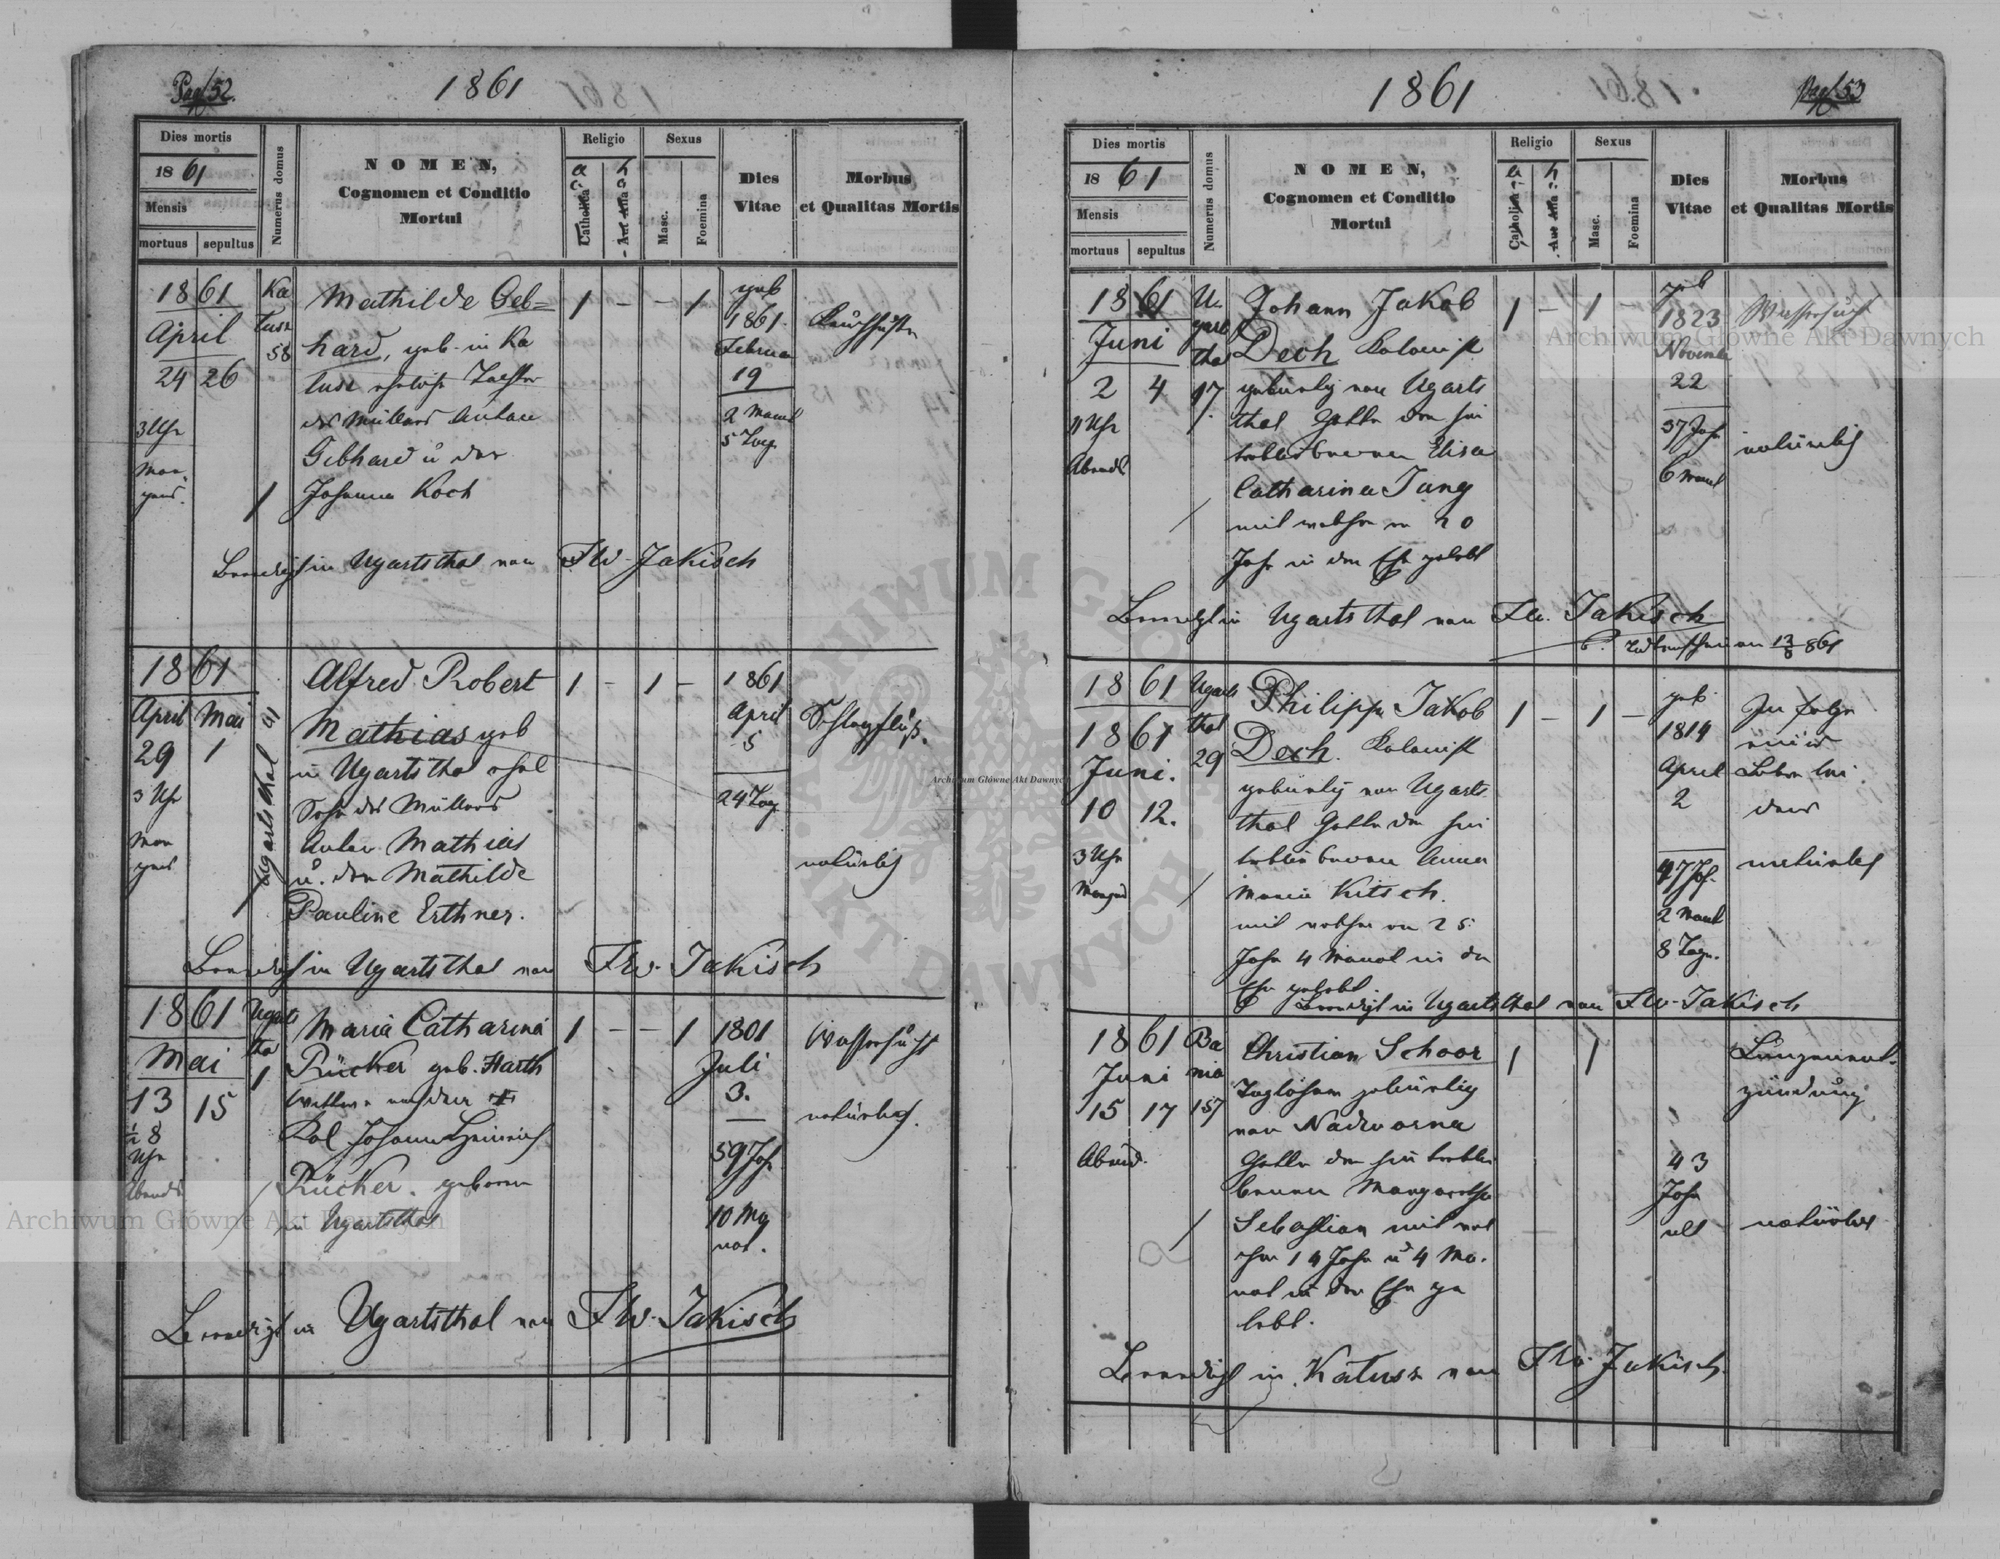 Pag. 52.
1861
Dies mortis
1861
Mensis
mortuus sepultus
Numerus domus
NOMEN,
Cognomen et Conditio
Mortui
Religio
Catholica
Aut Alia
Sexus
Masc.
Foemina
Dies
Vitae
Morbus
et Qualitas Mortis
1861
April
24 26
3 Uhr
Mor
gens.
Ka
lusz
58
1
Mathilde Geb=
hard, geb. in Ka
lusz ehelich Tochter
des Müllers Anton
Gebhard u der
Johanna Koch
1 - - 1
geb
1861.
Februar
19
2 Monat
5 Tag
Keuchhusten
Beerdigt in Ugartsthal von FW. Jakisch
1861
April Mai
29 1
3 Uhr
Mor
gens
Ugartsthal
Alfred Robert
Mathias geb
in Ugartsthal ehel
Sohn des Müllers
Anton Mathias
u. der Mathilde
Pauline Erthner.
1 - 1 -
1861
April
5
24 Tag
Schlagfluß.
natürlich
Beerdigt in Ugartsthal von FW. Jakisch
1861
Mai
13 15
½ 8
Uhr
Abends
Ugarts
thal
1
Maria Catharina
Rücker geb. Harth
Wittwe nach dem +
Kol Johann Heinrich
Rücker. geboren
in Ugartsthal
1 - - 1
1801
Juli
3.
59 Jahr
10 Mo
nat.
Wassersucht
natürlich.
Beerdigt in Ugartsthal von FW. Jakisch
Pag. 53
1861
Dies mortis
1861
Mensis
mortuus sepultus
Numerus domus
NOMEN,
Cognomen et Conditio
Mortui
Religio
Catholica
Aut Alia
Sexus
Masc.
Foemina
Dies
Vitae
Morbus
et Qualitas Mortis
1861
Juni
2 4
11 Uhr
Abends
U
garts
tha
17.
Johann Jakob
Dech Kolonist
gebürtig von Ugarts
thal Gatte der hin
terbliebenen Elisa
Catharina Jung
mit welcher er 20
Jahr in der Ehe gelebt
1 - 1 -
geb
1823
November
22
37 Jahr
6 Monat
Wassersucht
natürlich
Beerdigt in Ugartsthal von FW. Jakisch
1861
1861
Juni.
10 12.
3 Uhr
Morgens
Ugarts
thal
29
Philipp Jakob
Dech. Kolonist
gebürtig von Ugarts
thal Gatte der hin
terbliebenen Anna
Maria Kitsch.
mit welcher er 25
Jahr 4 Monat in der
Ehe gelebt.
1 - 1 -
geb.
1814
April
2
47 Jahr.
2 Monat
8 Tage.
In folge
natürlich
Beerdigt in Ugartsthal von FW. Jakisch
1861
Juni
15 17
Abend.
157
Christian Schoor
Taglöhner gebürtig
von Nadworna
Gatte der hinterblie
benen Margaretha
Sebastian mit wel
cher 14 Jahr u 4 Mo.
nat in der Ehe ge
lebt.
1 1
43
Jahr
alt
Lungenent.
zündung
natürlich
Beerdigt in Kalusz von FW. Jakisch.
Archiwum Główne Akt Dawnych
Archiwum Główne Akt Dawnych
Archiwum Główne Akt Dawnych